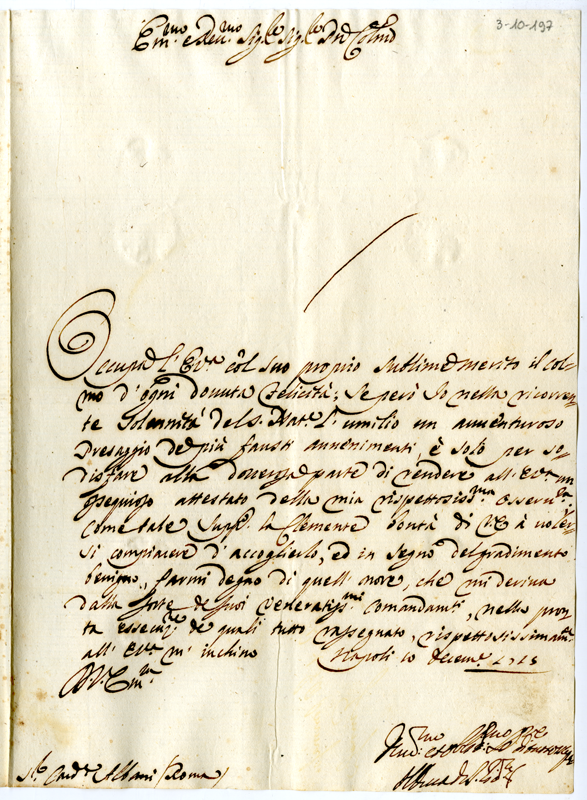 3-10-197
Em.mo e Rev.mo Sig.re Sig.re Pne Col.mo
Occupa l'E.V.ra col suo proprio sublime merito il col-
mo d'ogni dovuta felicità; Se però Io nella ricorren-
te Solennità del S. Nat.e L'umilio un avventuroso
Presaggio de più fausti avvenimenti, è solo per so-
disfare alla doverosa parte di rendere all'E.V.ra un
ossequioso attestato della mia rispettosiss.ma osserv.za
Come tale Supp.co la Clemente bontà di V.E. à voler-
si compiacere d'accoglierlo, ed in segno del gradimento
benigno, farmi degno di quell'onore, che mi deriva
dalla sorte de suoi veneratiss.mi comandanti, nella pron-
ta essecuz.ne de quali tutto rassegnato, rispettosissimam.te
all'E.V.ra m'inchino Napoli 10 decem.e 1713
D.V. Em.za
S.r Card.e Albani (Roma)